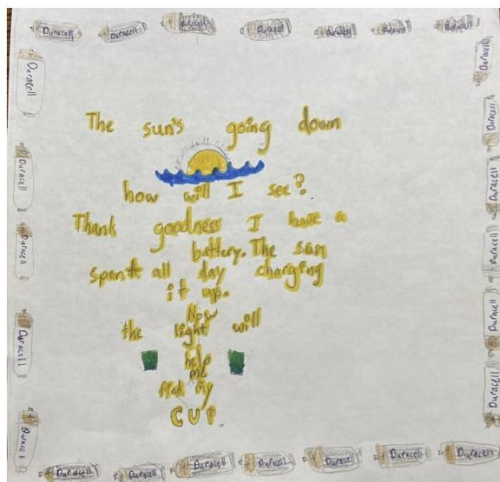 Duracell Duracell Duracell Duracell Duracell Duracell Duracell
Duracell
Duracell
Duracell
Duracell
Duracell
The sun's going down
how will I see?
Thank goodness I have a
battery. The sun
spent all day charging
it up.
Now
the light will
help
me
find my
CUP.
Duracell
Duracell
Duracell
Duracell
Duracell
Duracell
Duracell Duracell Duracell Duracell Duracell Duracell